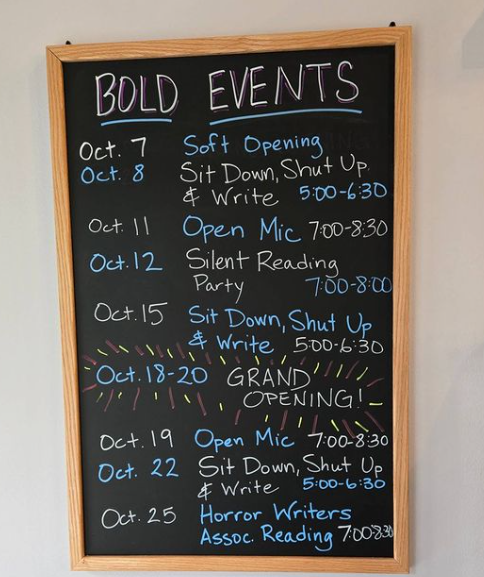 BOLD EVENTS
Oct. 7 Soft Opening
Oct. 8 Sit Down, Shut Up
& Write 5:00-6:30
Oct. 11 Open Mic 7:00-8:30
Oct. 12 Silent Reading
Party 7:00-8:00
Oct. 15 Sit Down, Shut Up
& Write 5:00-6:30
Oct. 18-20 GRAND
OPENING!
Oct. 19 Open Mic 7:00-8:30
Oct. 22 Sit Down, Shut Up
& Write 5:00-6:30
Oct. 25 Horror Writers
Assoc. Reading 7:00-8:30